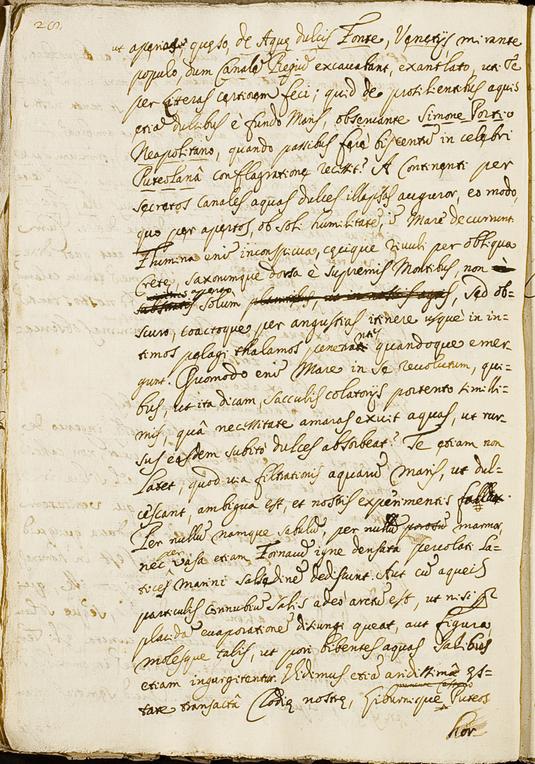 ut aperias queso de Aque dulcis Fonte, Venetijs mirante
populo, dum Canale Regiū excavabant, exantlato, uti Te
per literas certiorem feci; quid de profilientibus aquis
etiā dulcibus è fundo Maris, observante Simone Portio
Neapolitano, quando passibus bis centū in celebri
Puteolanâ conflagratione recessit? A Continenti per
secretos Canales aquas dulces illapsas auguror, eo modo,
quo per apertos, ob soli humilitatē, in Mare decurrunt
Flumina enim inconspicua, cecique rivuli per obliqua
Crete, saxorumque dorsa è supremis Montibus, non
solum, sed ob-
scuro, coactoque per angustias itinere usque in in-
timos pelagi thalamos quandoque emer
gunt. Quomodo enim Mare in se revolutum, qui-
bus, ut ita dicam, sacculis colatorijs portento simili-
mis, quâ necessitate amaras exuit aquas, ut rur
sus easdem subito dulces absorbeat? Te etiam non
Latet, quod via filtrationis aquarū Maris, ut dul-
cescant, ambigua est, et nostris experimentis
Per nullū namque sabulū, per nullū porosū marmor
nec per vasa etiam Fornacū igne densata percolati La-
tices Marini salsedine desistunt. Aut cū aqueis
particulis connubiū salis adeo arctū est, ut nisi
placida evaporatione disiungi queat, aut figura
molesque talis, ut pori bibentes aquas salibus
etiam ingurgitentur. Vidimus etiā aridissimâ es-
tate transactâ Clodie nostre, Liburnique Puteos
hor